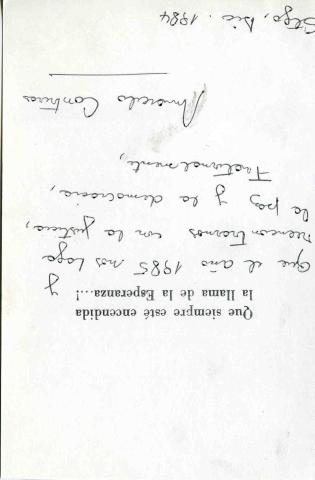 Que siempre esté encendida
la llama de la Esperanza...! y
que el año 1985 nos haga
reencontrarnos con la justicia,
la paz y la democracia,
Fraternalmente,
Marcelo Contreras
Stgo, Dic. 1984